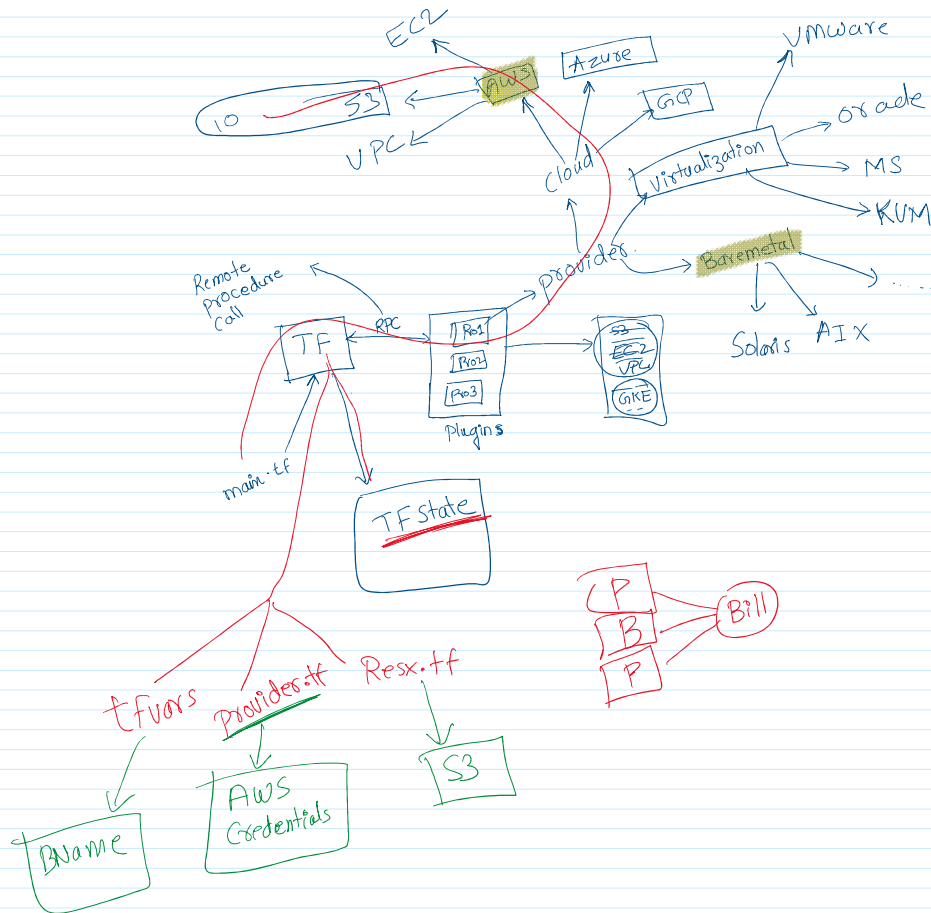 EC2
AWS
Azure
GCP
VMware
oracle
MS
KVM
10 S3
VPC
Cloud
Virtualization
provider.
Baremetal
.....
Solaris
AIX
Remote
procedure
call
RPC
TF
Pro1
Pro2
Pro3
plugins
S3
EC2
VPC
GKE
main.tf
TF State
P
B
P
Bill
tfvars
Provider.tf
Resx.tf
BName
AWS
Credentials
S3